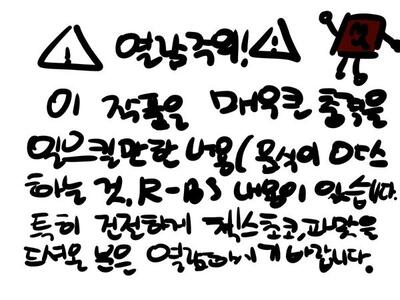 열람주의!
이 작품은 매우큰 충격을
일으킬만한 내용(문석이 ㅇㅑㅅ
하는 것, R-BS 내용이 있습니다.
특히 건전하게 잭스초코,과맛을
드셔온 분은 열람하시기 바랍니다.